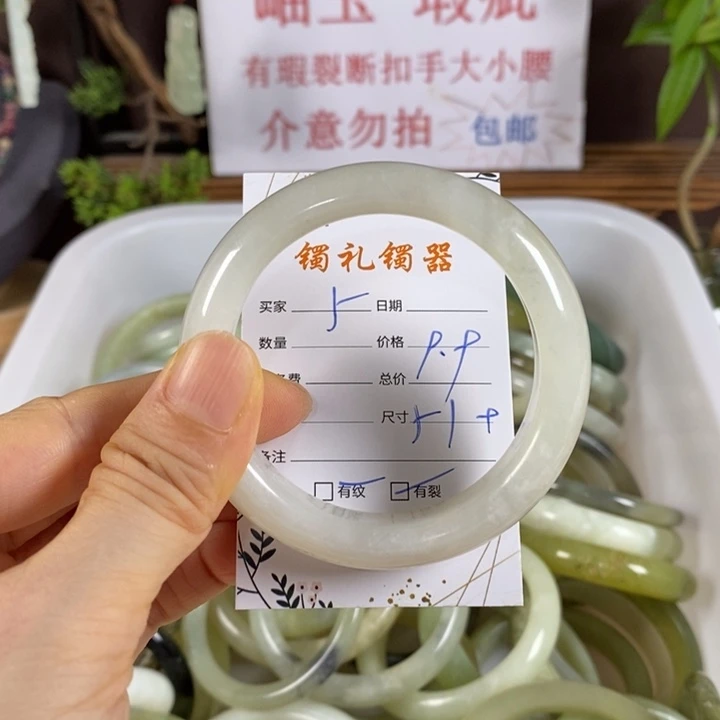 岫玉 瑕疵
有瑕裂断扣手大小腰
介意勿拍 包邮
镯礼镯器
买家 5 日期
数量 价格 9.9
费 总价
尺寸 51+
备注
有纹 有裂